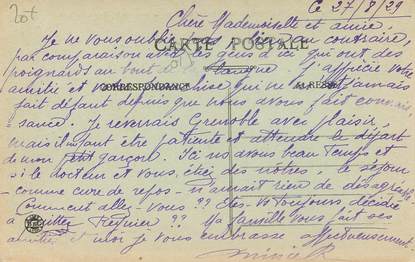 20f
Ce 27/8/29
Chère Mademoiselle et amie.
Je ne vous oublie pas, bien au contraire,
CARTE POSTALE
par comparaison avec les gens d'ici qui ont des
poignards au bout de la langue j'apprécie votre
CORRESPONDANCE
ADRESSE
amitié et qui ne m'ont jamais
fait défaut depuis que nous avons fait connais-
sance. Je reverrais Grenoble avec plaisir,
mais il me faut être patiente et attendre le départ
de mon petit garçon. Ici nous avons beau temps et
si le docteur et vous, étiez des nôtres, le séjour
comme cure de repos n'aurait rien de désagré
Comment allez-vous?? Etes-vous toujours décidée
à quitter Regnier?? Ma famille vous fait ses
amitiés et moi je vous embrasse affectueusement